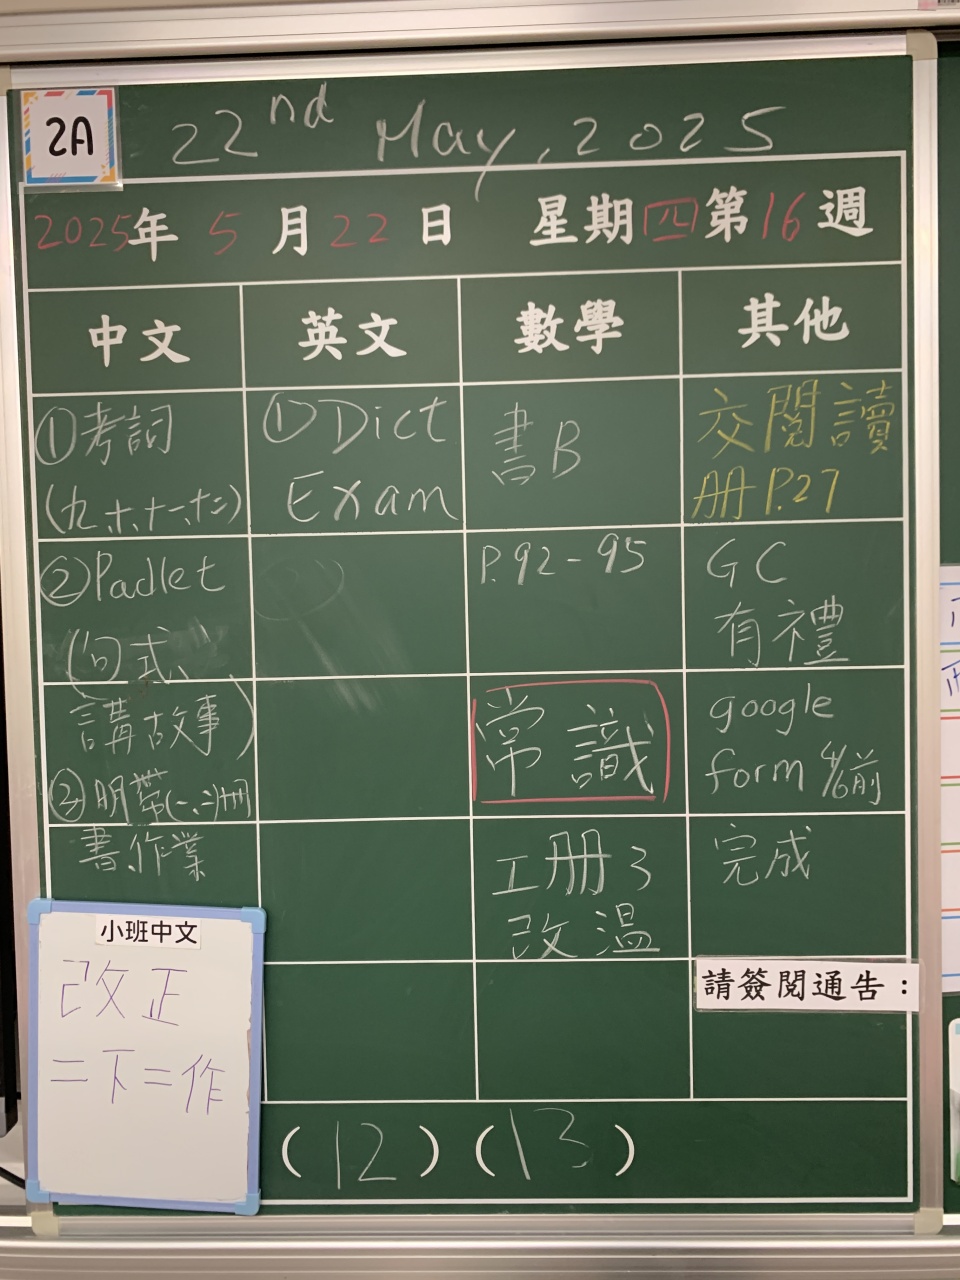 2A
22nd May, 2025
2025年 5月22日 星期四第16週
中文
①考詞
(九、十、十一、十二)
②Padlet
(句式、
講故事)
③明帶(一、二)冊
書、作業
小班中文
改正
二下二作
英文
①Dict
Exam
數學
書B
P.92-95
常識
工冊3
改溫
其他
交閱讀
冊P.27
GC
有禮
google
form 4/6前
完成
請簽閱通告：
(12)(13)